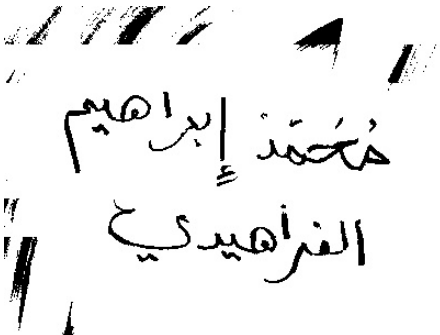 مُحَمَّد إبراهيم
الفراهيدي